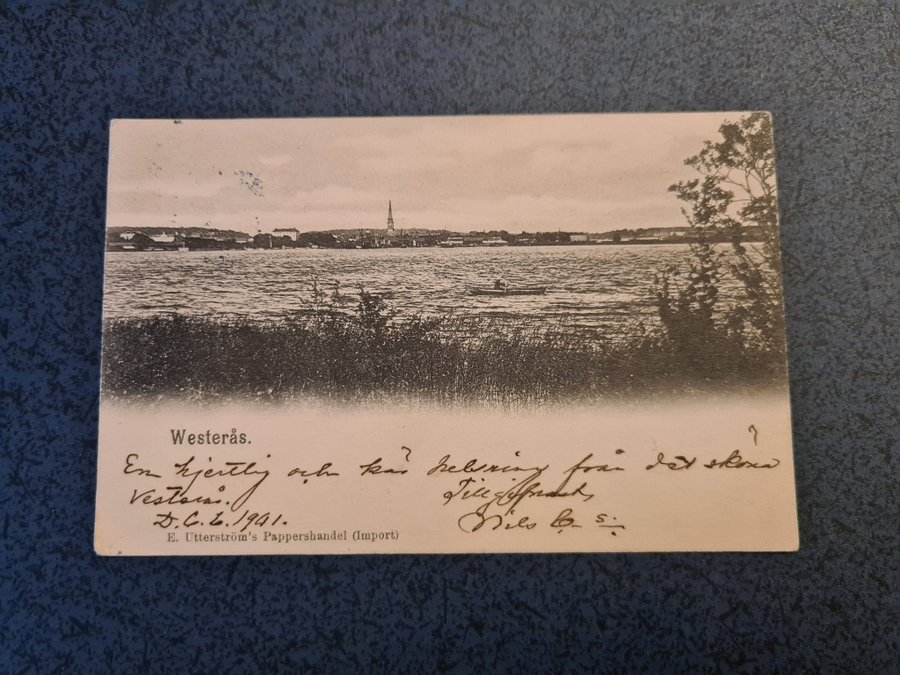 Westerås.
En hjertlig och kär helsning från det sköna
Vesterås. Tillgifnast,
D. 6. 6. 1901. Nils
E. Utterström's Pappershandel (Import)